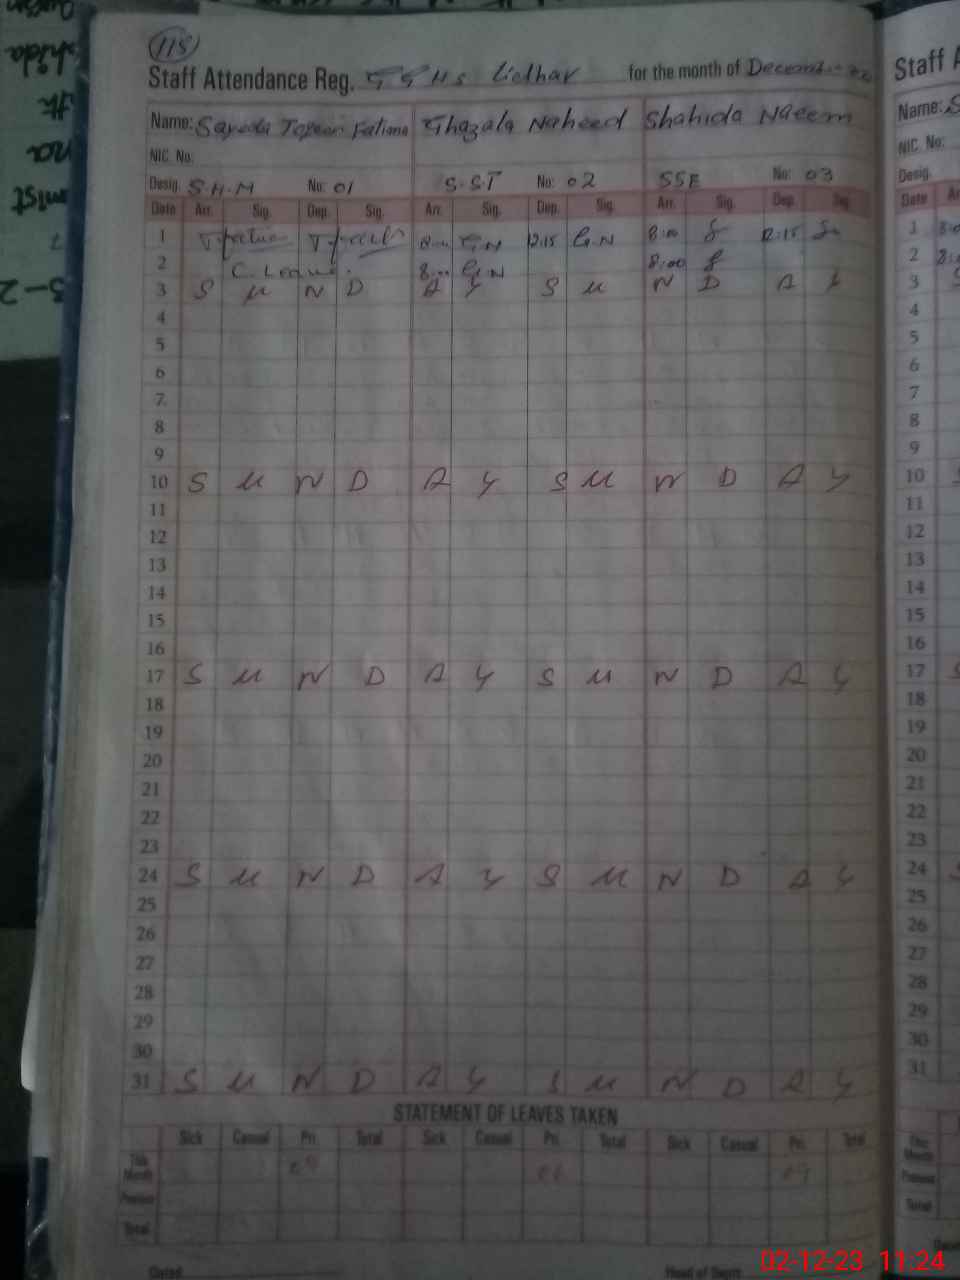 118
Staff Attendance Reg. GGHS Lidhar for the month of December
Name: Sayeda Fatima Ghazala Naheed Shahida Naeem
NIC. No:
Desig. S.H.M No: 01 S.S.T No: 02 SSE No: 03
Date Arr. Sig. Dep. Sig. Arr. Sig. Dep. Sig. Arr. Sig. Dep. Sig.
1 G.N 12:15 G.N 8:00 12:15
2 C. Leave. 8:00 G.N 8:00
3 S U N D A Y S U N D A Y
4
5
6
7
8
9
10 S U N D A Y S U N D A Y
11
12
13
14
15
16
17 S U N D A Y S U N D A Y
18
19
20
21
22
23
24 S U N D A Y S U N D A Y
25
26
27
28
29
30
31 S U N D A Y S U N D A Y
STATEMENT OF LEAVES TAKEN
Sick Casual Pri. Total Sick Casual Pri. Total Sick Casual Pri. Total
This Month
Previous
Total
Dated
Head of Deptt.
Staff A
Name: S
NIC. No:
Desig.
Date Ar
1 8:0
2 8:0
3 S
4
5
6
7
8
9
10 S
11
12
13
14
15
16
17 S
18
19
20
21
22
23
24 S
25
26
27
28
29
30
31
This Month
Previous
Total
02-12-23 11:24